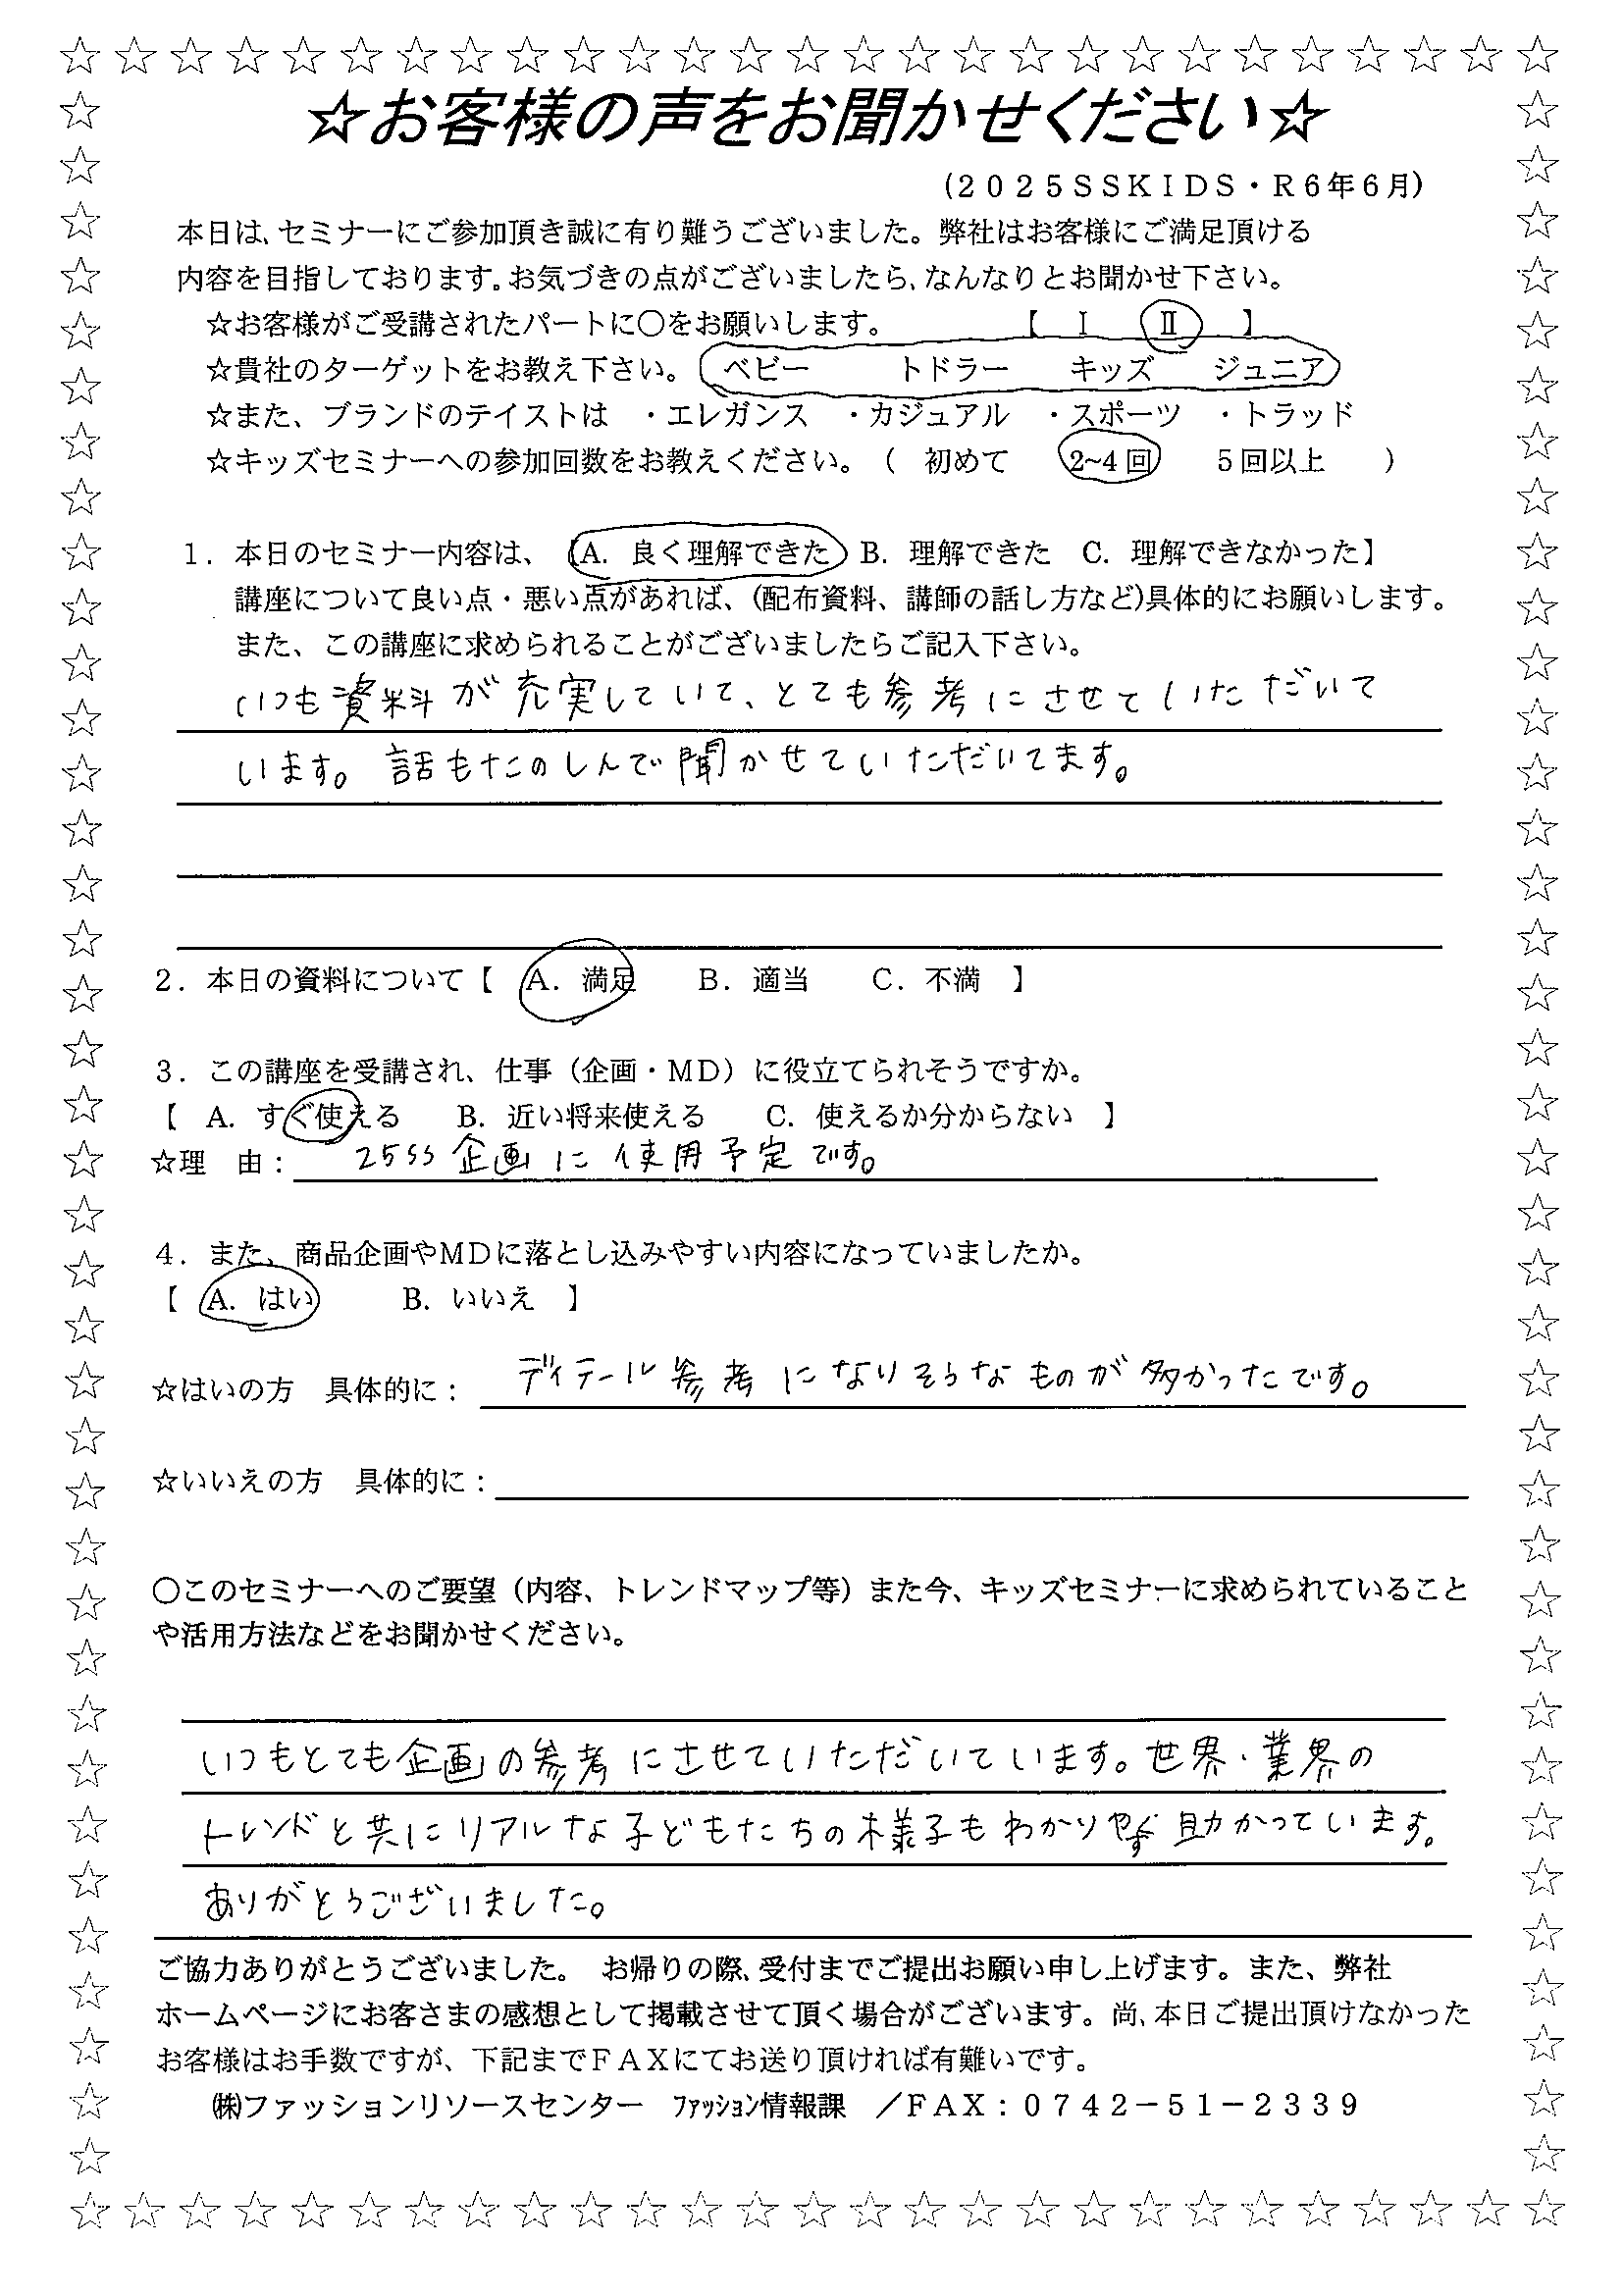 ☆お客様の声をお聞かせください☆
(2025SSKIDS・R6年6月)
本日は､セミナーにご参加頂き誠に有り難うございました。弊社はお客様にご満足頂ける
内容を目指しております｡お気づきの点がございましたら､なんなりとお聞かせ下さい。
☆お客様がご受講されたパートに○をお願いします。 【 Ⅰ Ⅱ 】
☆貴社のターゲットをお教え下さい。 ベビー トドラー キッズ ジュニア
☆また、ブランドのテイストは ・エレガンス ・カジュアル ・スポーツ ・トラッド
☆キッズセミナーへの参加回数をお教えください。（ 初めて 2~4回 5回以上 ）
1．本日のセミナー内容は、【A．良く理解できた B．理解できた C．理解できなかった】
講座について良い点・悪い点があれば、(配布資料、講師の話し方など)具体的にお願いします。
また、この講座に求められることがございましたらご記入下さい。
いつも資料が充実していて、とても参考にさせていただいて
います。話もたのしんで聞かせていただいてます。
2．本日の資料について【 A．満足 B．適当 C．不満 】
3．この講座を受講され、仕事（企画・MD）に役立てられそうですか。
【 A．すぐ使える B．近い将来使える C．使えるか分からない 】
☆理 由： 25SS 企画に使用予定です。
4．また、商品企画やMDに落とし込みやすい内容になっていましたか。
【 A．はい B．いいえ 】
☆はいの方 具体的に： ディテール参考になりそうなものが多かったです。
☆いいえの方 具体的に：
○このセミナーへのご要望（内容、トレンドマップ等）また今、キッズセミナーに求められていること
や活用方法などをお聞かせください。
いつもとても企画の参考にさせていただいています。世界・業界の
トレンドと共にリアルな子どもたちの様子もわかりやすく助かっています。
ありがとうございました。
ご協力ありがとうございました。 お帰りの際､受付までご提出お願い申し上げます。また、弊社
ホームページにお客さまの感想として掲載させて頂く場合がございます。尚､本日ご提出頂けなかった
お客様はお手数ですが、下記までFAXにてお送り頂ければ有難いです。
㈱ファッションリソースセンター ﾌｧｯｼｮﾝ情報課 ／FAX：0742－51－2339